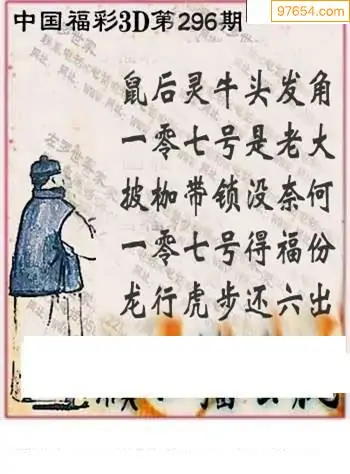 中国福彩3D第296期
97654.com
鼠后灵牛头发角
一零七号是老大
披枷带锁没奈何
一零七号得福份
龙行虎步还六出